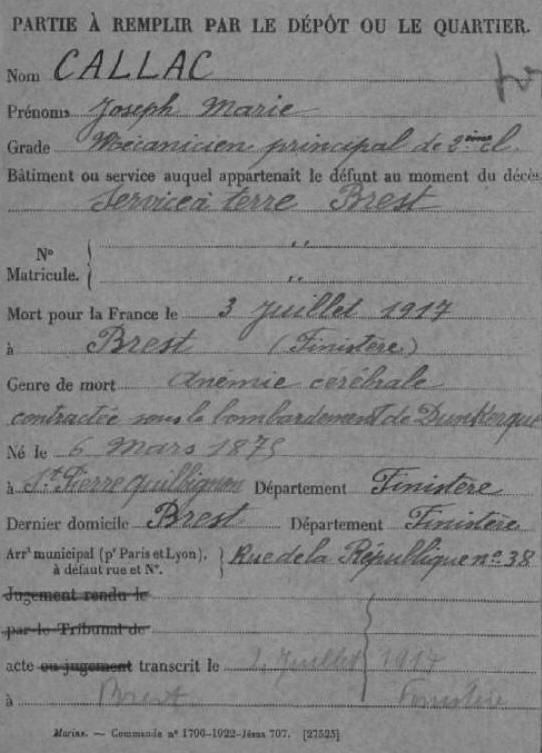 PARTIE À REMPLIR PAR LE DÉPÔT OU LE QUARTIER.
Nom CALLAC
Prénoms Joseph Marie
Grade Mécanicien principal de 2ème cl.
Bâtiment ou service auquel appartenait le défunt au moment du décès
Service à terre Brest
No
Matricule.
"
"
Mort pour la France le 3 Juillet 1917
à Brest (Finistère)
Genre de mort Anémie cérébrale
contractée sous le bombardement de Dunkerque
Né le 6 Mars 1875
à St Pierre Quilbignon Département Finistère
Dernier domicile Brest Département Finistère
Arrt municipal (pr Paris et Lyon), à défaut rue et No. Rue de la République no. 38
Jugement rendu le
par le Tribunal de
acte ou jugement transcrit le Juillet 1917
à Brest Finistère
Marine. — Commande no 1796-1922-Jésus 707. [27525]